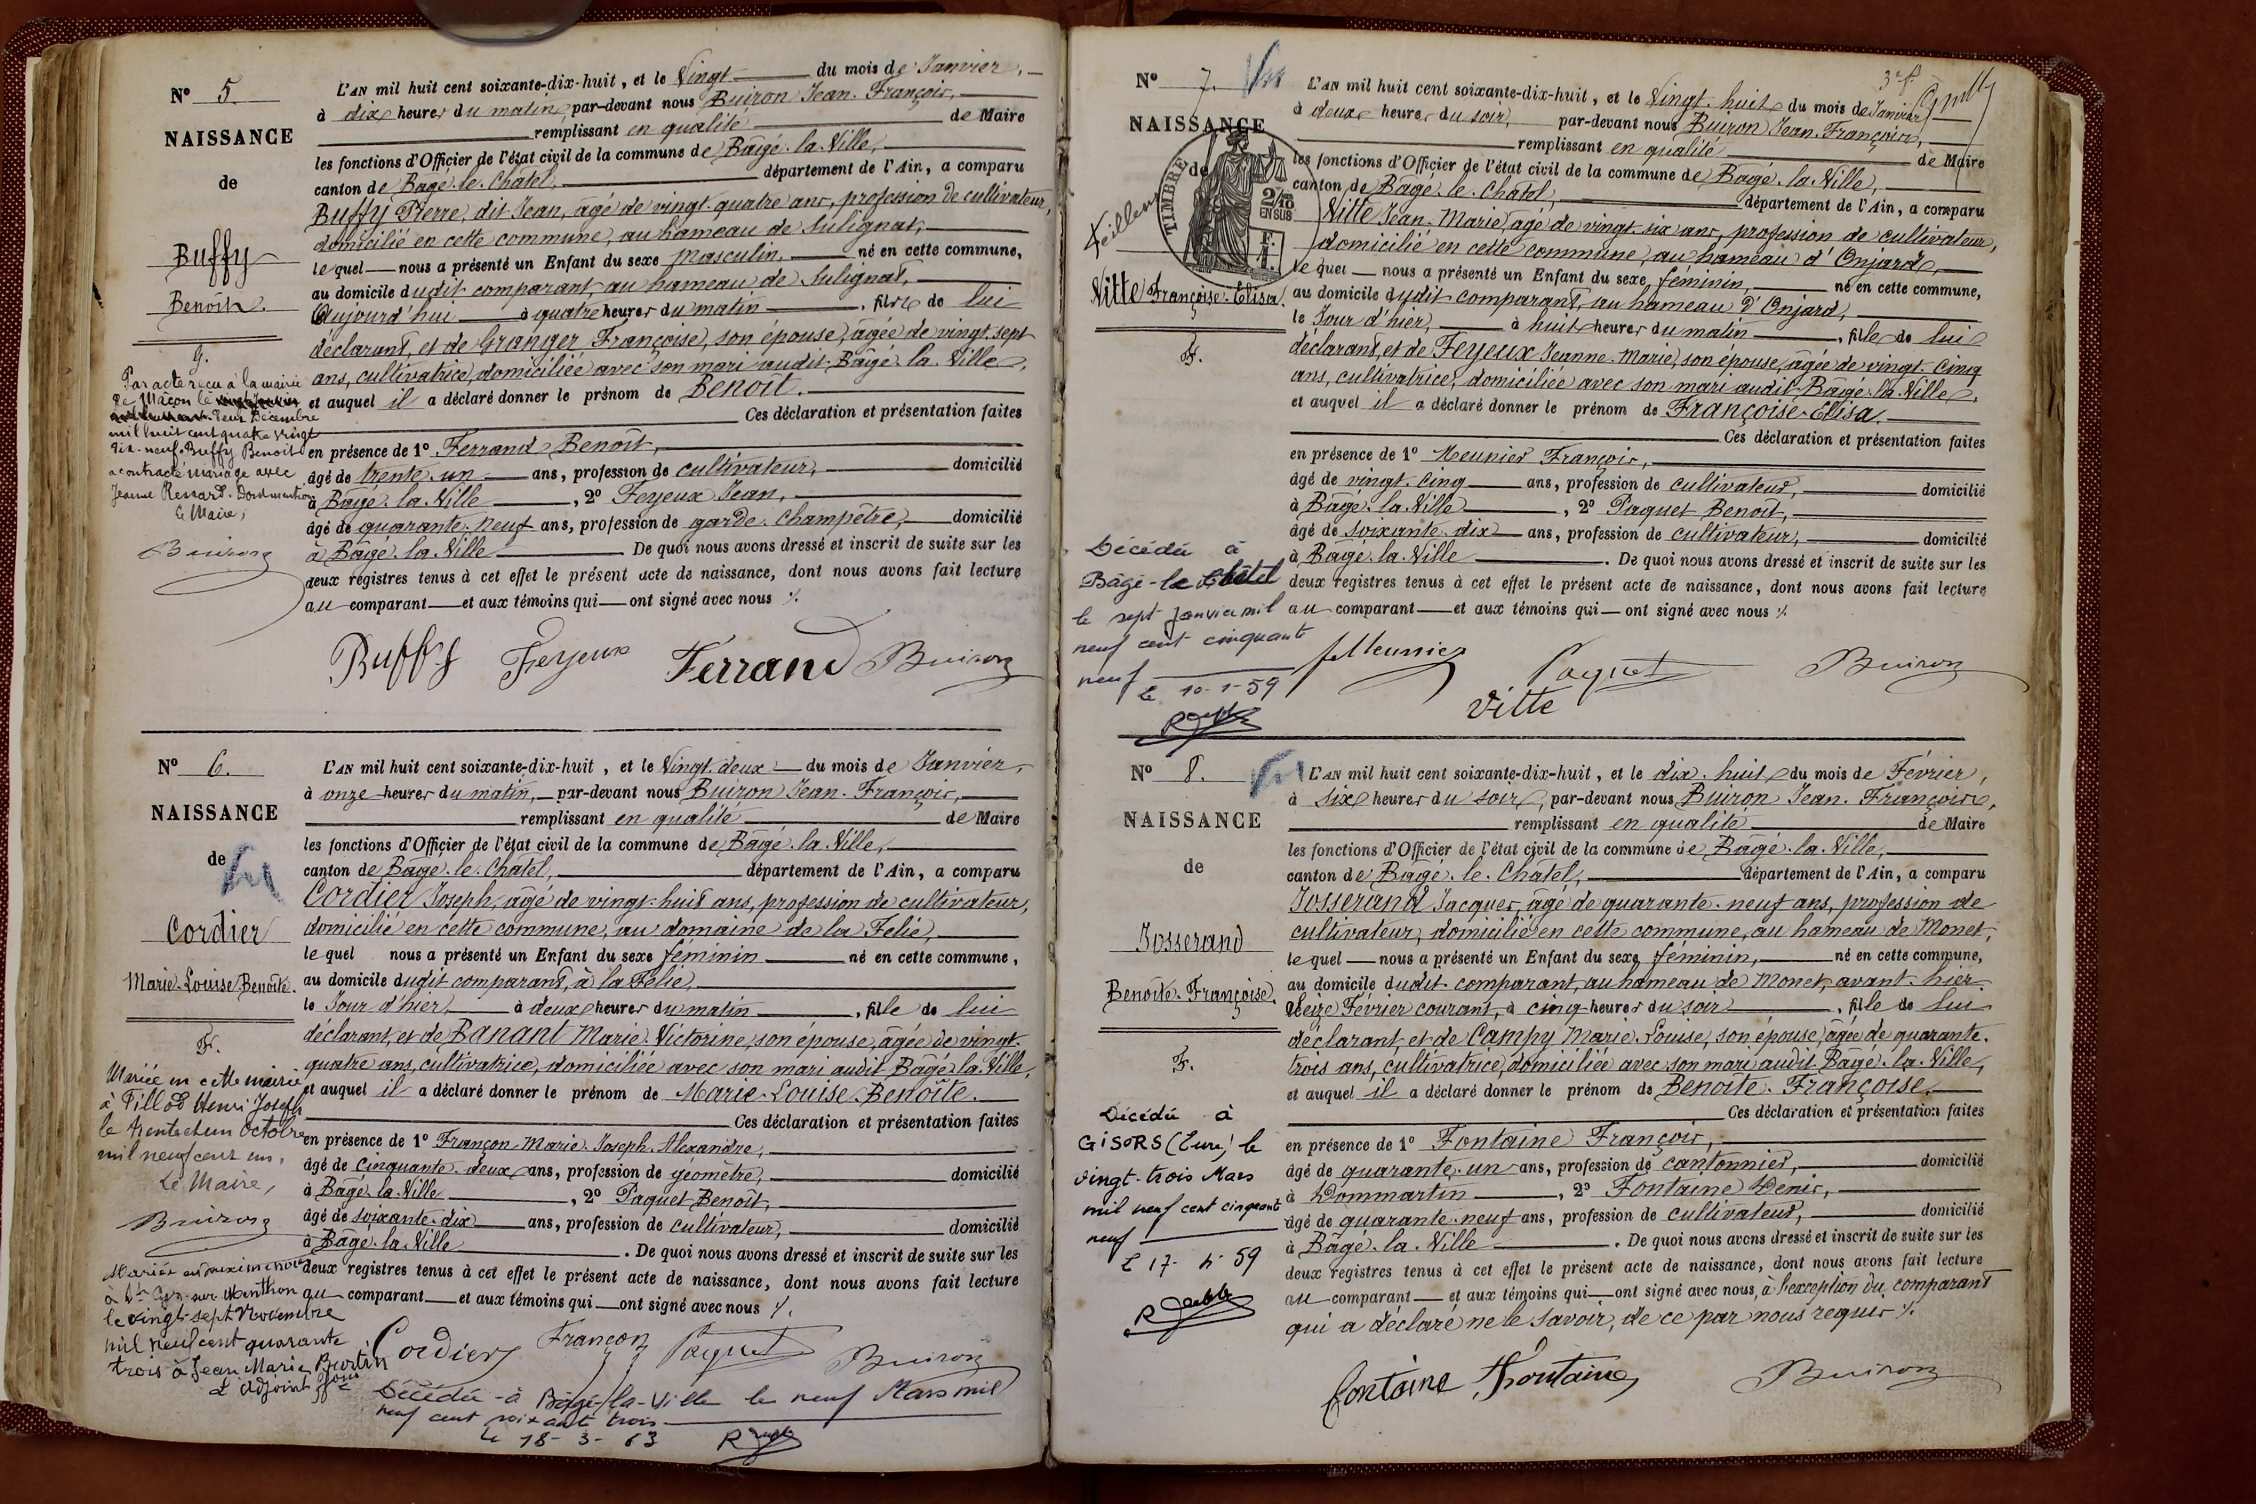 Nº 5.
NAISSANCE
de
Buffy
Benoît.
G.
Par acte reçu à la mairie
de Mâcon le
deux Décembre
mil huit cent quatre vingt
dix-neuf Buffy Benoît
a contracté mariage avec
Jeanne Renard. Dont mention
Le Maire,
Buiron
L'AN mil huit cent soixante-dix-huit, et le Vingt du mois de Janvier,
à dix heures du matin, par-devant nous Buiron Jean-François,
remplissant en qualité de Maire
les fonctions d'Officier de l'état civil de la commune de Bâgé-la-Ville,
canton de Bâgé-le-Châtel, département de l'Ain, a comparu
Buffy Pierre, dit Jean, âgé de vingt-quatre ans, profession de cultivateur,
domicilié en cette commune, au hameau de Sulignat,
lequel nous a présenté un Enfant du sexe masculin, né en cette commune,
au domicile dudit comparant, au hameau de Sulignat,
Aujourd'hui à quatre heures du matin, fils de lui
déclarant, et de Granger Françoise, son épouse, âgée de vingt-sept
ans, cultivatrice, domiciliée avec son mari audit Bâgé-la-Ville,
et auquel il a déclaré donner le prénom de Benoît.
Ces déclaration et présentation faites
en présence de 1º Ferrand Benoît,
âgé de trente-un ans, profession de cultivateur, domicilié
à Bâgé-la-Ville, 2º Feyeux Jean,
âgé de quarante-neuf ans, profession de garde-champêtre, domicilié
à Bâgé-la-Ville. De quoi nous avons dressé et inscrit de suite sur les
deux registres tenus à cet effet le présent acte de naissance, dont nous avons fait lecture
au comparant et aux témoins qui ont signé avec nous ⁒.
Buffy Feyeux Ferrand Buiron
Nº 6.
NAISSANCE
de
Cordier
Marie-Louise-Benoîte.
F.
Mariée en cette mairie
à Pillod Henri Joseph
le trente et un octobre
mil neuf cent un.
Le Maire,
Buiron
Mariée en deuxième noces
à St Cyr-sur-Menthon
le vingt-sept Novembre
mil neuf cent quarante
trois à Jean Marie Burtin
L'Adjoint
L'AN mil huit cent soixante-dix-huit, et le Vingt-deux du mois de Janvier,
à onze heures du matin, par-devant nous Buiron Jean-François,
remplissant en qualité de Maire
les fonctions d'Officier de l'état civil de la commune de Bâgé-la-Ville,
canton de Bâgé-le-Châtel, département de l'Ain, a comparu
Cordier Joseph, âgé de vingt-huit ans, profession de cultivateur,
domicilié en cette commune, au domaine de la Felie,
lequel nous a présenté un Enfant du sexe féminin né en cette commune,
au domicile dudit comparant, à la Felie,
le Jour d'hier, à deux heures du matin, fille de lui
déclarant, et de Banant Marie-Victorine, son épouse, âgée de vingt-
quatre ans, cultivatrice, domiciliée avec son mari audit Bâgé-la-Ville,
et auquel il a déclaré donner le prénom de Marie-Louise-Benoîte.
Ces déclaration et présentation faites
en présence de 1º Françon Marie-Joseph-Alexandre,
âgé de cinquante-deux ans, profession de géomètre, domicilié
à Bâgé-la-Ville, 2º Paquet Benoît,
âgé de soixante-dix ans, profession de cultivateur, domicilié
à Bâgé-la-Ville. De quoi nous avons dressé et inscrit de suite sur les
deux registres tenus à cet effet le présent acte de naissance, dont nous avons fait lecture
au comparant et aux témoins qui ont signé avec nous ⁒.
Cordier Françon Paquet Buiron
Décédée à Bâgé-la-Ville le neuf Mars mil
neuf cent soixante trois
Le 18-3-63
Nº 7.
NAISSANCE
de
TIMBRE
2/10
EN SUS
F.
1.
Vitte Françoise-Elisa.
F.
Décédée à
Bâgé-le Châtel
le sept Janvier mil
neuf cent cinquante
neuf
Le 10-1-59
L'AN mil huit cent soixante-dix-huit, et le Vingt-huit du mois de Janvier
à deux heures du soir, par-devant nous Buiron Jean-François,
remplissant en qualité de Maire
les fonctions d'Officier de l'état civil de la commune de Bâgé-la-Ville,
canton de Bâgé-le-Châtel, département de l'Ain, a comparu
Vitte Jean-Marie, âgé de vingt-six ans, profession de cultivateur,
domicilié en cette commune, au hameau d'Onjard,
lequel nous a présenté un Enfant du sexe féminin, né en cette commune,
au domicile dudit comparant, au hameau d'Onjard,
le Jour d'hier, à huit heures du matin, fille de lui
déclarant, et de Feyeux Jeanne-Marie, son épouse, âgée de vingt-cinq
ans, cultivatrice, domiciliée avec son mari audit Bâgé-la-Ville,
et auquel il a déclaré donner le prénom de Françoise-Elisa.
Ces déclaration et présentation faites
en présence de 1º Meunier François,
âgé de vingt-cinq ans, profession de cultivateur, domicilié
à Bâgé-la-Ville, 2º Paquet Benoît,
âgé de soixante-dix ans, profession de cultivateur, domicilié
à Bâgé-la-Ville. De quoi nous avons dressé et inscrit de suite sur les
deux registres tenus à cet effet le présent acte de naissance, dont nous avons fait lecture
au comparant et aux témoins qui ont signé avec nous ⁒.
Meunier Paquet Buiron
Vitte
Nº 8.
NAISSANCE
de
Josserand
Benoîte-Françoise.
F.
Décédée à
GISORS (Eure) le
vingt-trois Mars
mil neuf cent cinquante
neuf
Le 17-4-59
L'AN mil huit cent soixante-dix-huit, et le dix-huit du mois de Février,
à six heures du soir, par-devant nous Buiron Jean-François,
remplissant en qualité de Maire
les fonctions d'Officier de l'état civil de la commune de Bâgé-la-Ville,
canton de Bâgé-le-Châtel, département de l'Ain, a comparu
Josserand Jacques, âgé de quarante-neuf ans, profession de
cultivateur, domicilié en cette commune, au hameau de Monet,
lequel nous a présenté un Enfant du sexe féminin, né en cette commune,
au domicile dudit comparant, au hameau de Monet, avant-hier
Seize Février courant, à cinq heures du soir, fille de lui
déclarant et de Campy Marie-Louise, son épouse, âgée de quarante-
trois ans, cultivatrice, domiciliée avec son mari audit Bâgé-la-Ville,
et auquel il a déclaré donner le prénom de Benoîte-Françoise.
Ces déclaration et présentation faites
en présence de 1º Fontaine François,
âgé de quarante-un ans, profession de cantonnier, domicilié
à Dommartin, 2º Fontaine Denis,
âgé de quarante-neuf ans, profession de cultivateur, domicilié
à Bâgé-la-Ville. De quoi nous avons dressé et inscrit de suite sur les
deux registres tenus à cet effet le présent acte de naissance, dont nous avons fait lecture
au comparant et aux témoins qui ont signé avec nous, à l'exception du comparant
qui a déclaré ne le savoir, de ce par nous requis ⁒.
Fontaine Fontaine Buiron